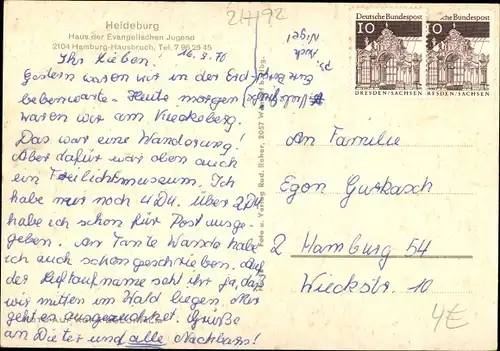 Heideburg
Haus der Evangelischen Jugend
2104 Hamburg-Hausbruch, Tel. 7 96 25 45
217/92
Ihr Lieben! 16. 3. 70
Gestern waren wir in der Erd-
bebenwarte. Heute morgen
waren wir am Kiekeberg.
Das war eine Wanderung!
Aber dafür war oben auch
ein Freilichtmuseum. Ich
habe nur noch 4 DM. über 2 DM
habe ich schon für Post ausge-
geben. An Tante Wanda habe
ich auch schon geschrieben. Auf
der Luftaufname seht ihr ja, daß
wir mitten im Wald liegen. Mir
geht es ausgezeichnet. Grüße
an Dieter und alle Nachbarn!
Eure
auch
Nigel
Foto u. Verlag Rud. Reher, 2057 Wentorf b. Hbg.
Deutsche Bundespost
10
DRESDEN/SACHSEN
Deutsche Bundespost
10
DRESDEN/SACHSEN
An Familie
Egon Gutkasch
2 Hamburg 54
Wieckstr. 10
4€